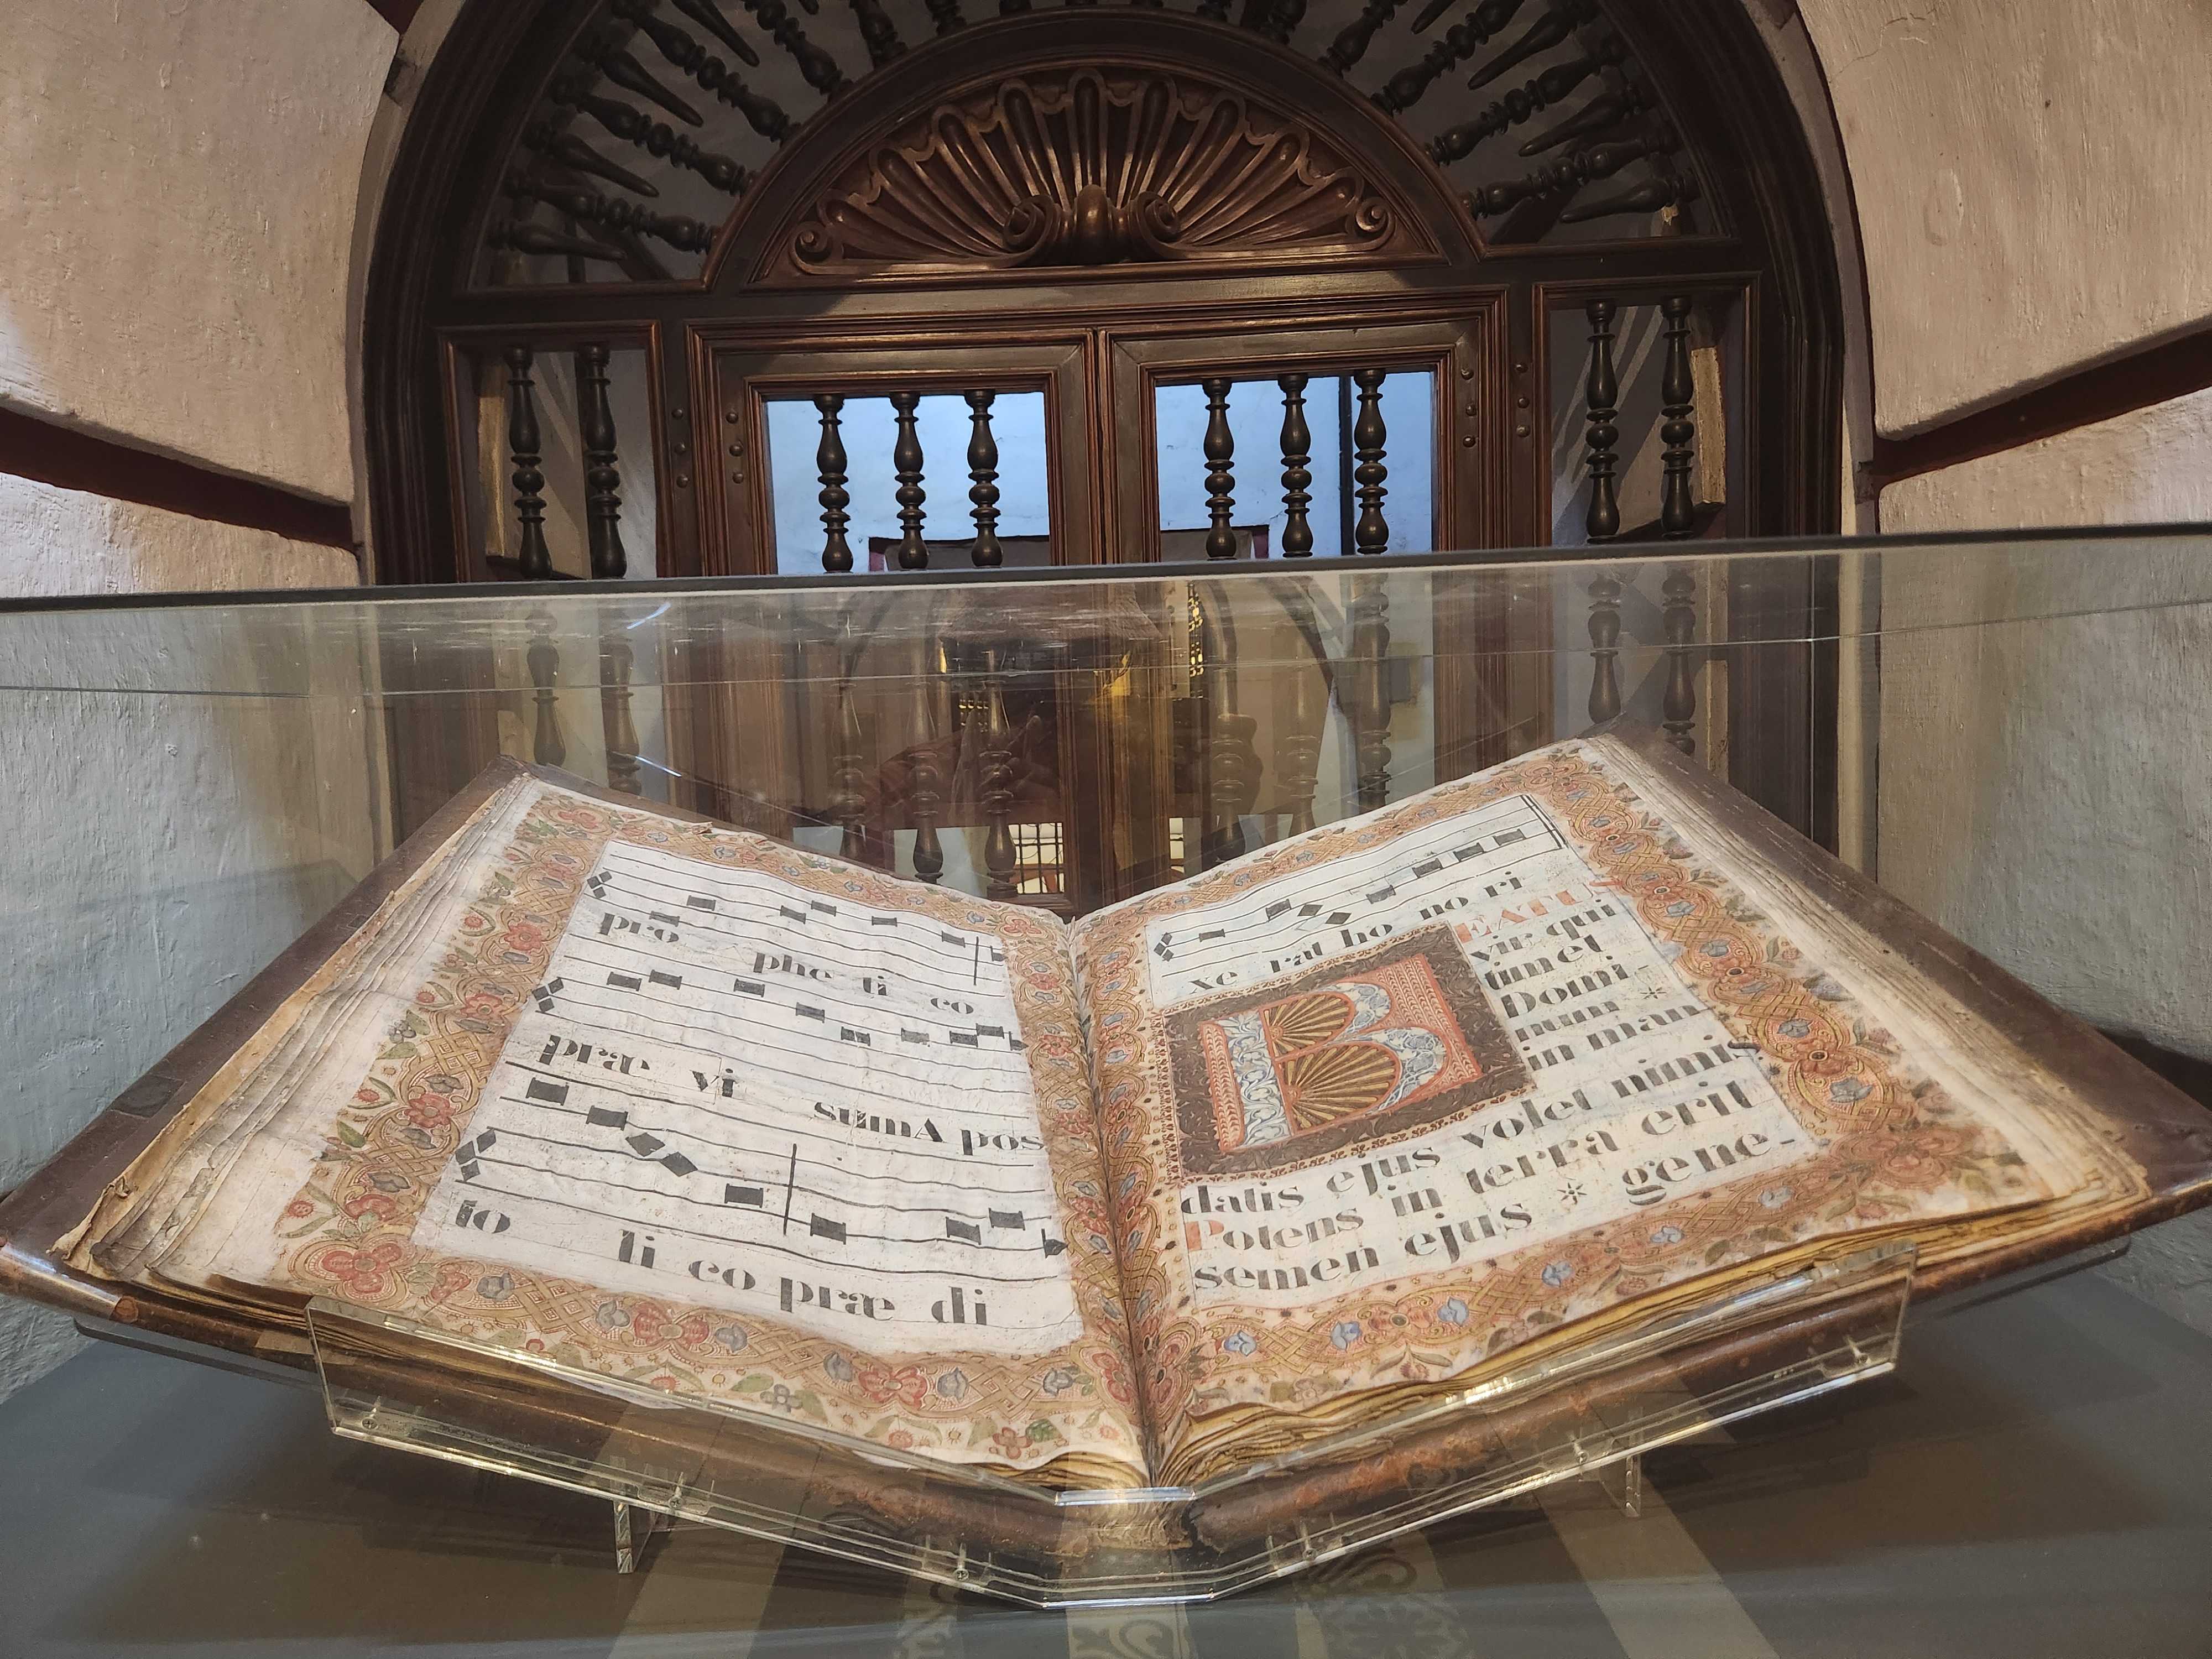 pro phe ti co
præ vi sumA pos
to li co præ di
xe rat ho no ri
BEATUS
vir qui
timet
Domi-
num *
in man
datis ejus volet nimis
Potens in terra erit
semen ejus * gene-